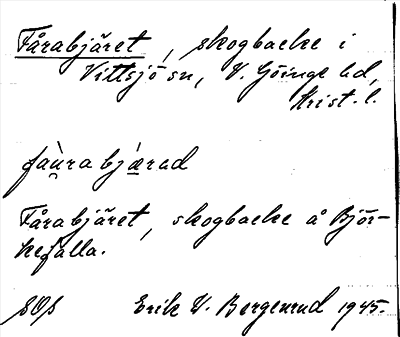 Fårabjäret, skogbacke i
Vittsjö sn, V. Göinge hd,
Krist. l.
fàu̯rabjä̀rad
Fårabjäret, skogbacke å Björ-
kefalla.
Erik W. Bergenrud 1945.